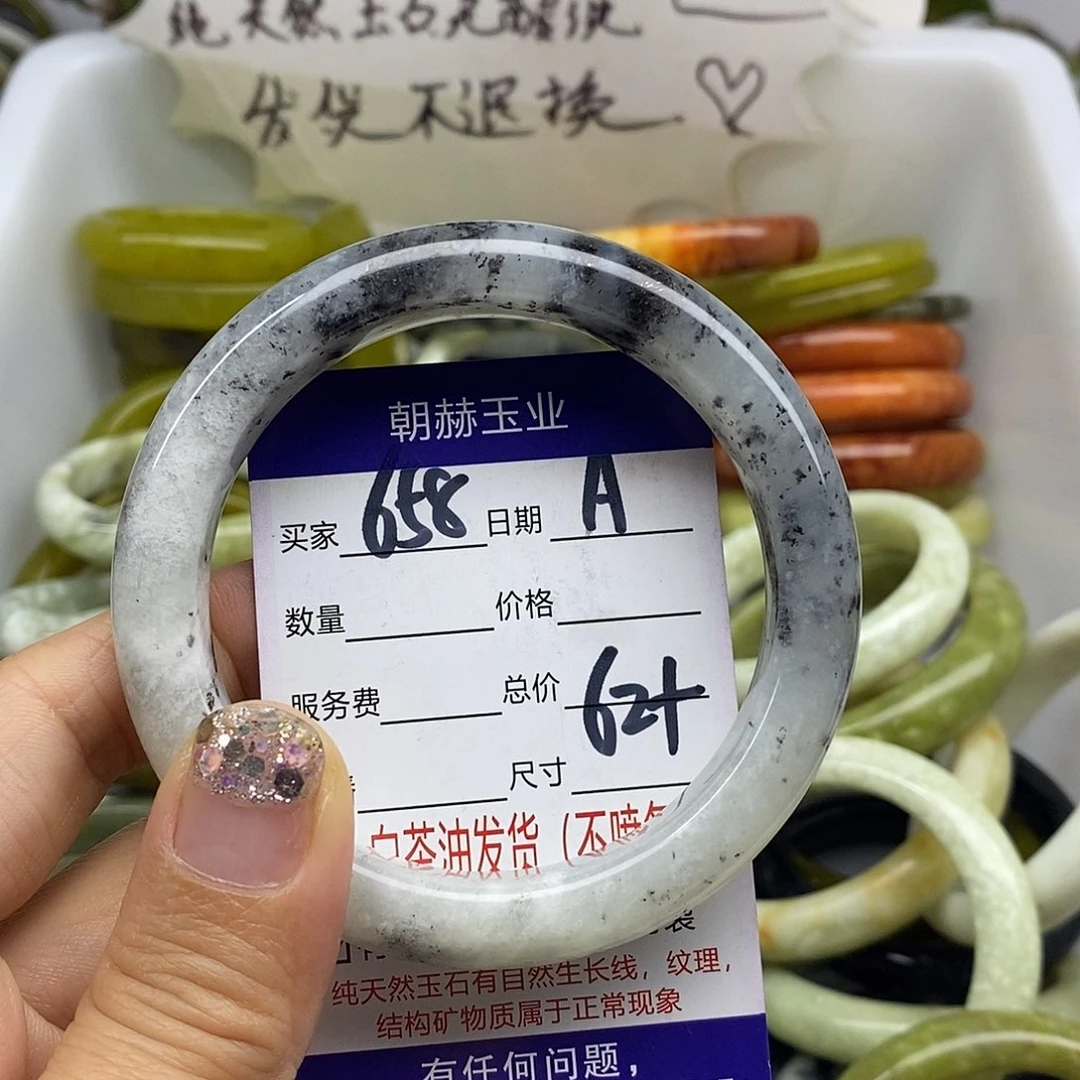 纯天然玉石无醛洗
售出不退换
朝赫玉业
买家 658 日期 A
数量 价格
服务费 总价 62+
尺寸
白茶油发货（不喷
纯天然玉石有自然生长线，纹理，
结构矿物质属于正常现象
有任何问题，